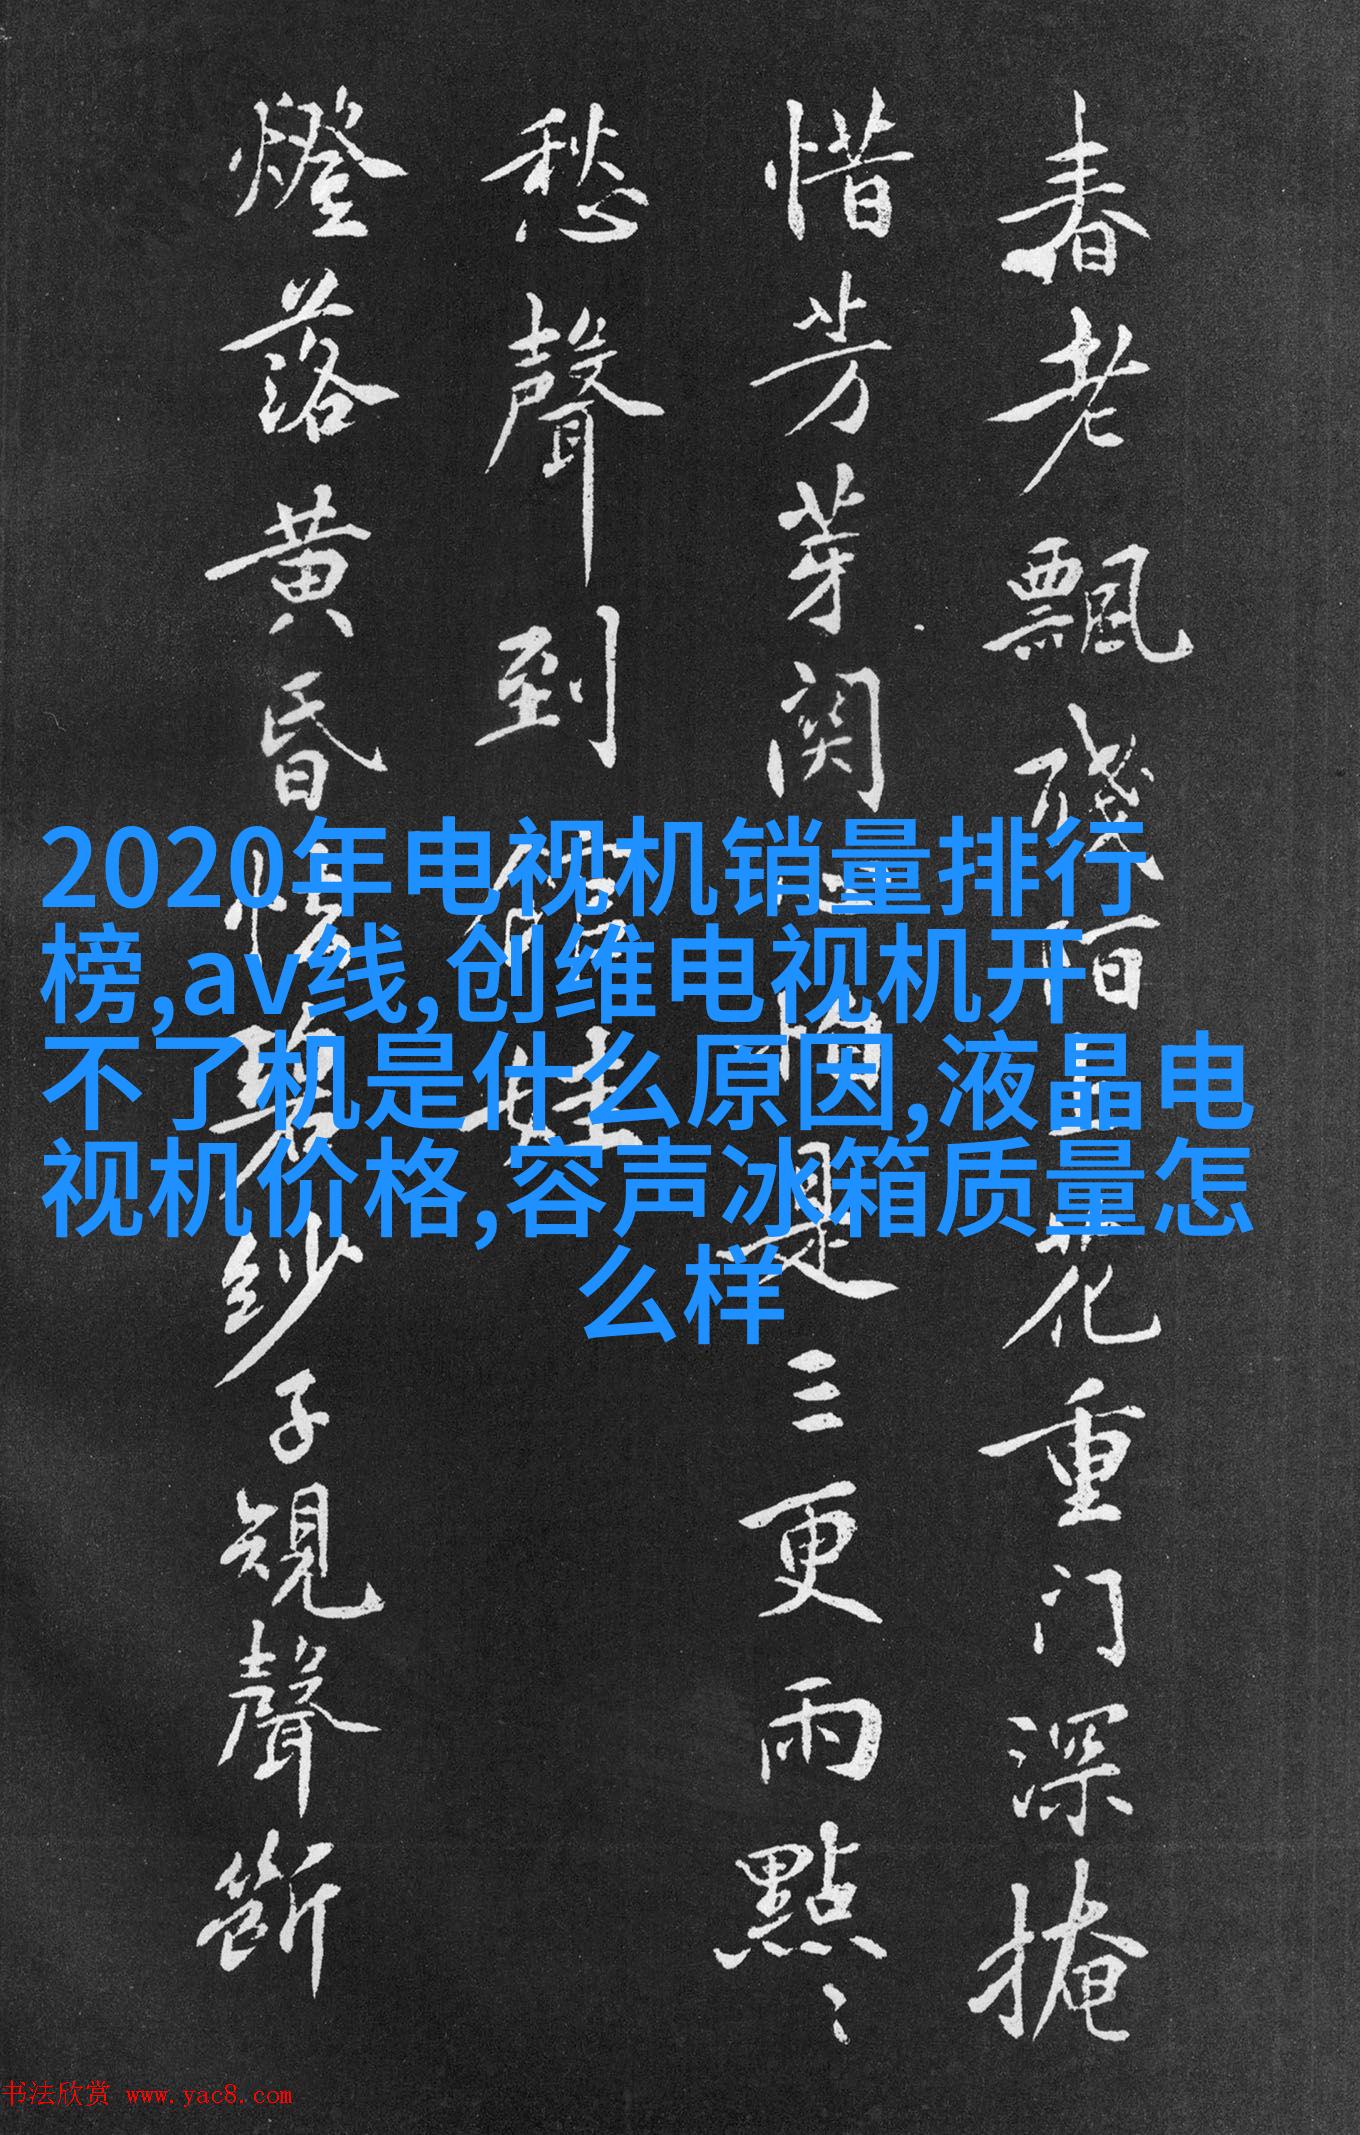 春老飄殘陌上花重门深掩
惜芳芽関心怕是三更雨點〻
愁聲到館娃
燈落黄昏碧紗子規聲断
2020年电视机销量排行
榜,av线,创维电视机开
不了机是什么原因,液晶电
视机价格,容声冰箱质量怎
么样
书法欣赏 www.yac8.com